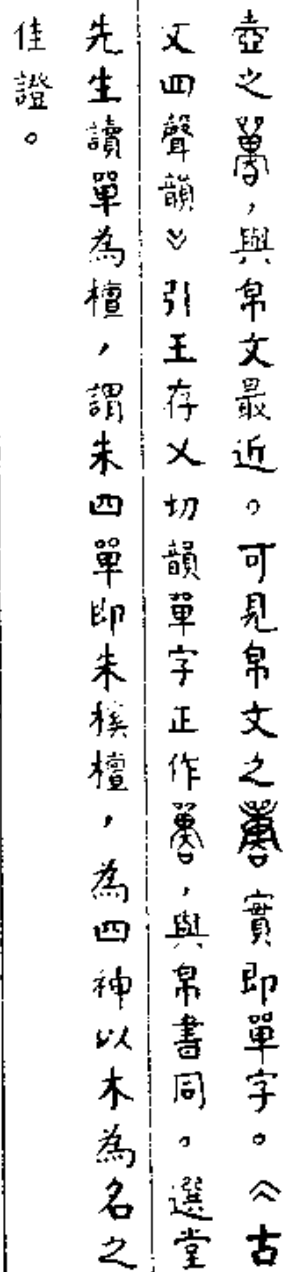 壺之，與帛文最近。可見帛文之實即單字。《古
文四聲韻》引王存乂切韻單字正作，與帛書同。選堂
先生讀單為檀，謂朱四單即朱檱檀，為四神以木為名之
佳證。